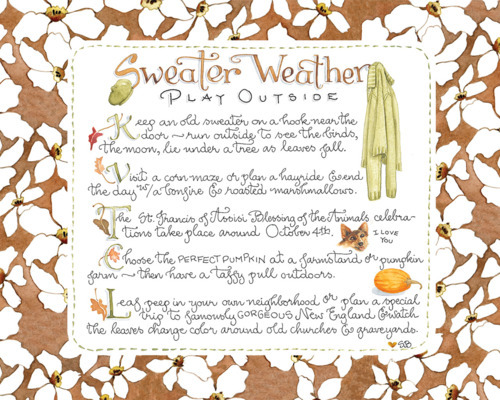 Sweater Weather
PLAY OUTSIDE
Keep an old sweater on a hook near the
door ~ run outside to see the birds,
the moon, lie under a tree as leaves fall.
Visit a corn maze or plan a hayride & end
the day w/a bonfire & roasted marshmallows.
The St. Francis of Assisi Blessing of the Animals celebra-
tions take place around October 4th.
I LOVE
YOU
Choose the PERFECT PUMPKIN at a farmstand or pumpkin
farm ~ then have a taffy pull outdoors.
Leaf peep in your own neighborhood or plan a special
trip to famously GORGEOUS New England & watch
the leaves change color around old churches & graveyards.